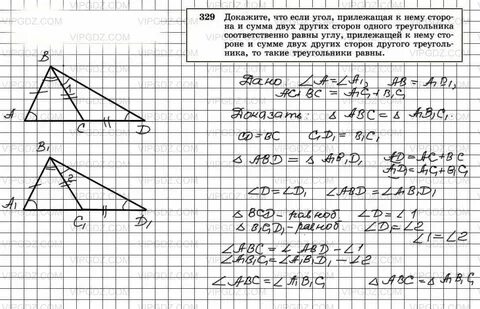 329 Докажите, что если угол, прилежащая к нему сторо-
на и сумма двух других сторон одного треугольника
соответственно равны углу, прилежащей к нему сто-
роне и сумме двух других сторон другого треуголь-
ника, то такие треугольники равны.
Дано ∠A=∠A₁, AB = A₁B₁,
AC+BC = A₁C₁+B₁C₁
Доказать: △ABC = △A₁B₁C₁.
CD=BC C₁D₁ = B₁C₁
△ABD = △A₁B₁D₁ AD = AC+BC
A₁D₁ = A₁C₁+B₁C₁
∠D=∠D₁ ∠ABD = ∠A₁B₁D₁
△BCD – равноб ∠D = ∠1
△B₁C₁D₁ – равноб ∠D₁ = ∠2
∠1 = ∠2
∠ABC = ∠ABD – ∠1
∠A₁B₁C₁ = ∠A₁B₁D₁ – ∠2
∠ABC = ∠A₁B₁C₁ △ABC = △A₁B₁C₁
B
A
C
D
B₁
2
A₁
C₁
D₁